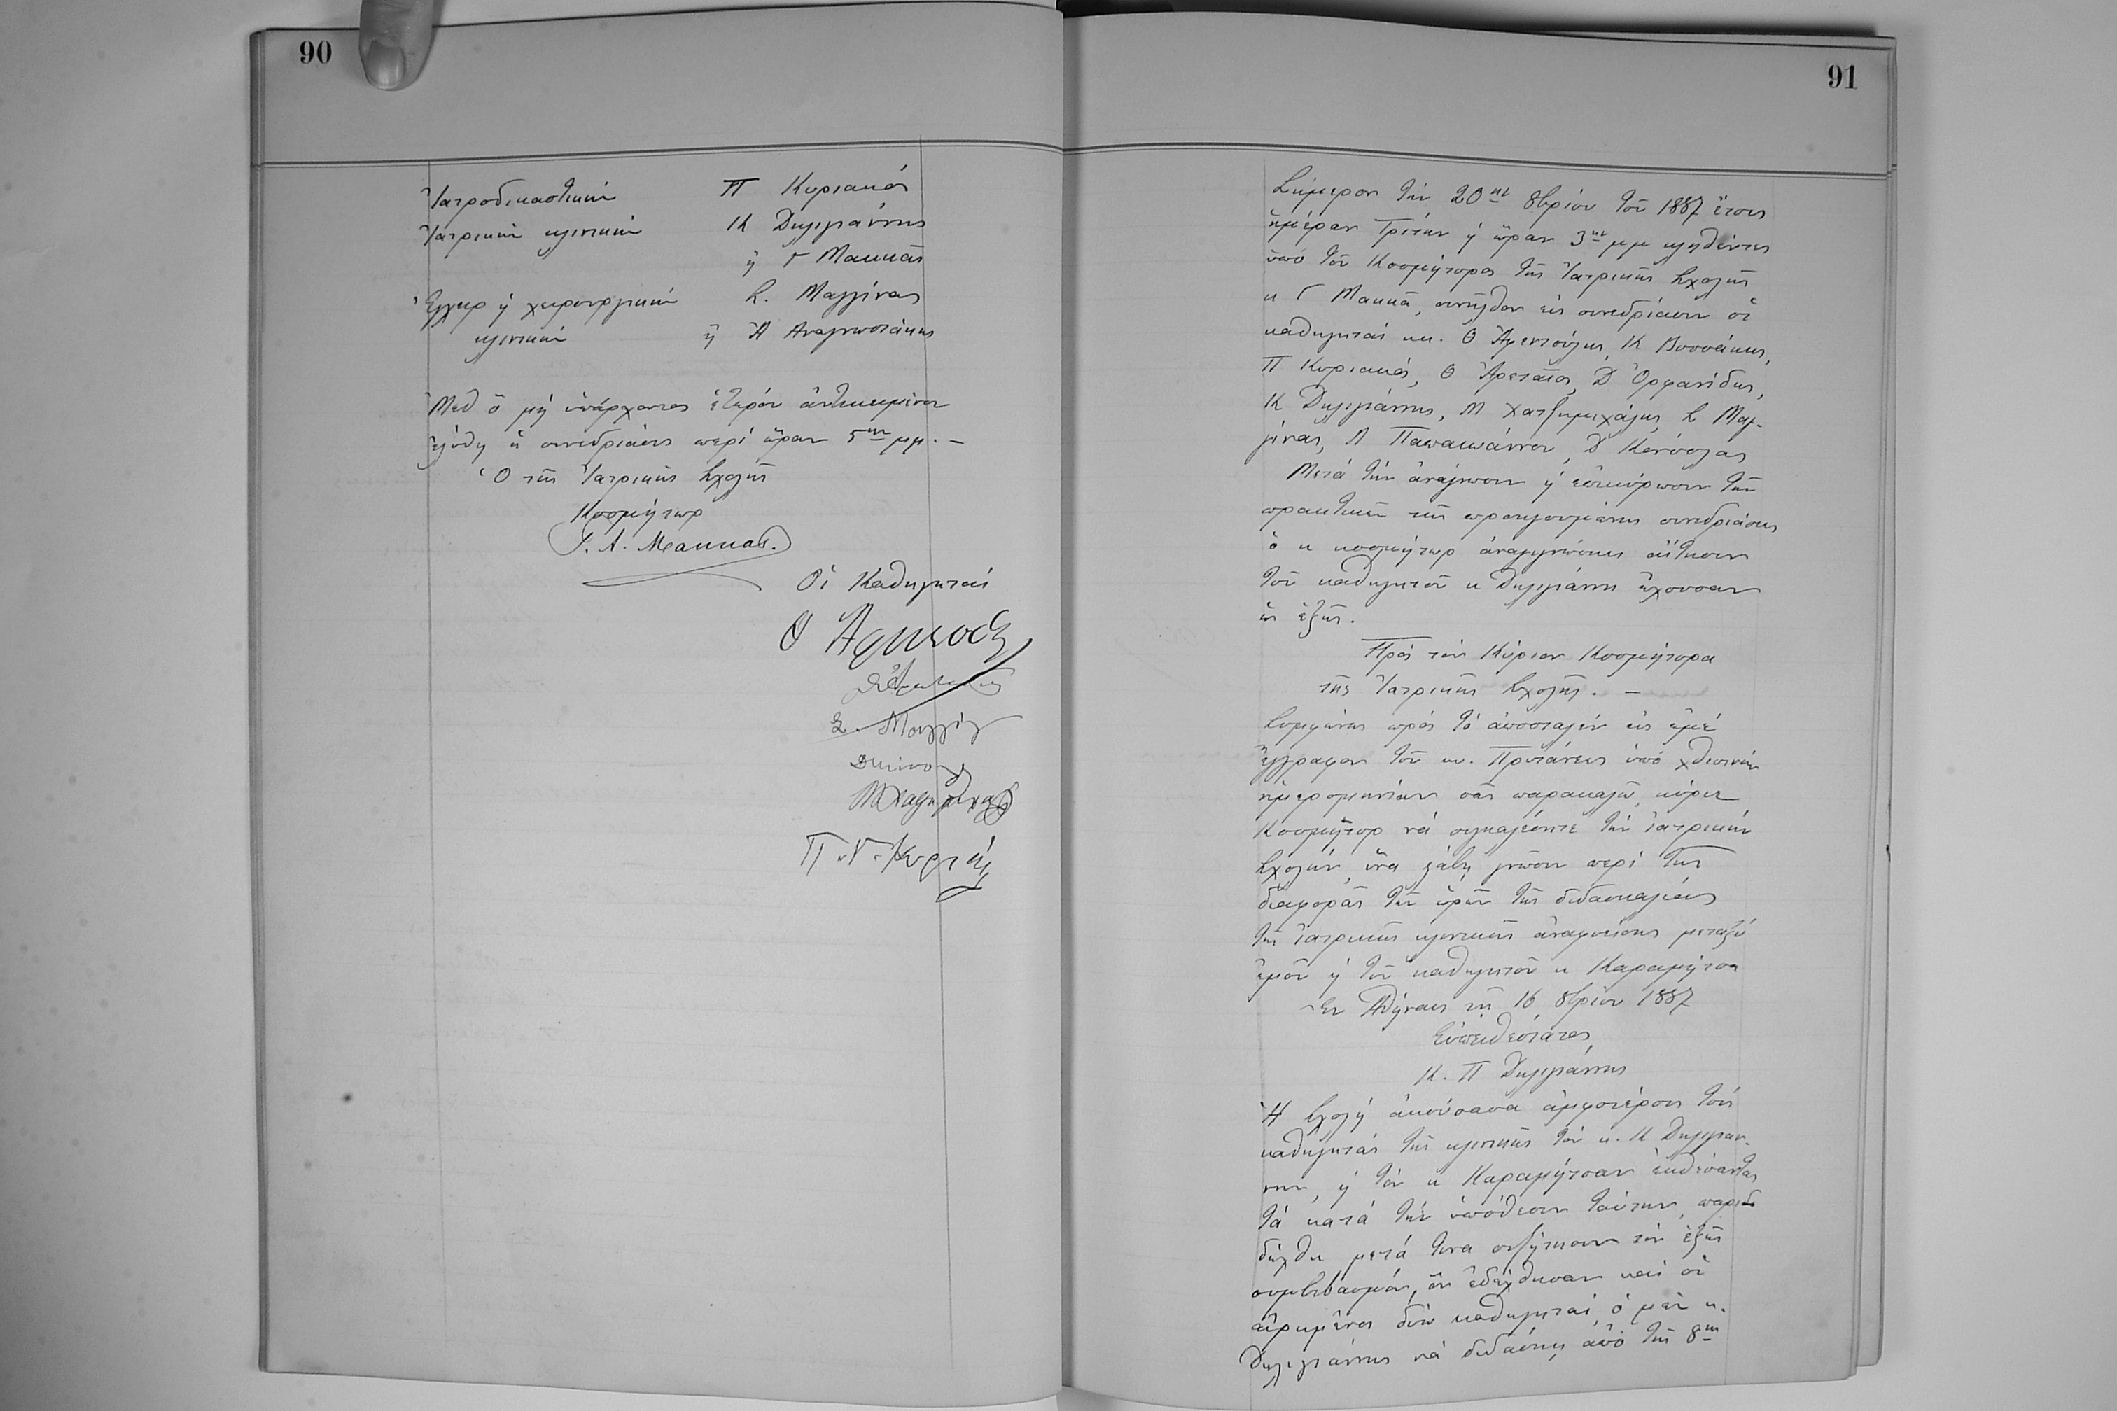 90
Ἰατροδικαστικὴν Π Κυριακός
Ἰατρικὴν κλινικὴν Κ Δηλιγιάννης
ἢ Γ Μακκᾶς
Ἐγχειρ ἢ χειρουργικὴν Σ. Μαγγίνας
κλινικὴν ἢ Ἀ Αναγνωστάκης
Μεθ ὃ μὴ ὑπάρχοντος ἑτέρου ἀντικειμένου
ἐλύθη ἡ συνεδρίασις περὶ ὥραν 5ην μμ. –
Ὁ τῆς Ἰατρικῆς Σχολῆς
Κοσμήτωρ
Γ. Α. Μακκας.
Οἱ Καθηγηταί
Θ Ἀφεντούλης
Σ. Μαγγίνας
Μ Χατζημιχάλης
Π. Γ. Κυριακός
91
Σήμερον τὴν 20ην 8βρίου τοῦ 1887 ἔτους
ἡμέραν Τρίτην ἢ ὥραν 3ην μμ κληθέντες
ὑπὸ τοῦ Κοσμήτορος τῆς Ἰατρικῆς Σχολῆς
κ Γ Μακκᾶ, συνῆλθον εἰς συνεδρίασιν οἱ
καθηγηταὶ κκ. Θ Ἀφεντούλης, Κ Βουσάκης,
Π Κυριακός, Θ Ἀρεταῖος, Δ Ὀρφανίδης,
Κ Δηλιγιάννης, Μ Χατζημιχάλης, Σ Μαγ-
γίνας, Λ Παπαιωάννου, Δ Κανόπλας
Μετὰ τὴν ἀνάγνωσιν ἢ ἐπικύρωσιν τῶν
πρακτικῶν τῆς προηγουμένης συνεδριάσεως
ὁ κ κοσμήτωρ ἀναγιγνώσκει αἴτησιν
τοῦ καθηγητοῦ κ Δηλιγιάννη ἔχουσαν
ὡς ἑξῆς.
Πρὸς τὸν Κύριον Κοσμήτορα
τῆς Ἰατρικῆς Σχολῆς. –
Συμφώνως πρὸς τὸ ἀποσταλὲν εἰς ἐμὲ
ἔγγραφον τοῦ κυ. Πρυτάνεως ὑπὸ χθεσινὴν
ἡμερομηνίαν σᾶς παρακαλῶ, κύριε
Κοσμῆτορ νὰ συγκαλέσητε τὴν Ἰατρικὴν
Σχολήν, ἵνα λάβῃ γνῶσιν περὶ τῆς
διαφορᾶς τῶν ὡρῶν τῆς διδασκαλίας
τῆς Ἰατρικῆς κλινικῆς ἀναφυείσης μεταξὺ
ἐμοῦ ἢ τοῦ καθηγητοῦ κ Καραμήτσα
Ἐν Ἀθήναις τῇ 16 8βρίου 1887
Εὐπειθέστατος
Κ. Π Δηλιγιάννης
Ἡ Σχολὴ ἀκούσασα ἀμφοτέρους τοὺς
καθηγητὰς τῆς κλινικῆς τὸν κ. Κ Δηλιγιάν-
νην, ἢ τὸν κ Καραμήτσαν ἐκθέσαντας
τὰ κατὰ τὴν ὑπόθεσιν ταύτην, παρεδέ
δέχθη μετά τινα συζήτησιν τὸν ἑξῆς
συμβιβασμόν, ὃν ἐδέχθησαν καὶ οἱ
εἰρημένοι δύω καθηγηταί, ὁ μὲν κ.
Δηλιγιάννης νὰ διδάσκῃ ἀπὸ τῆς 8ης